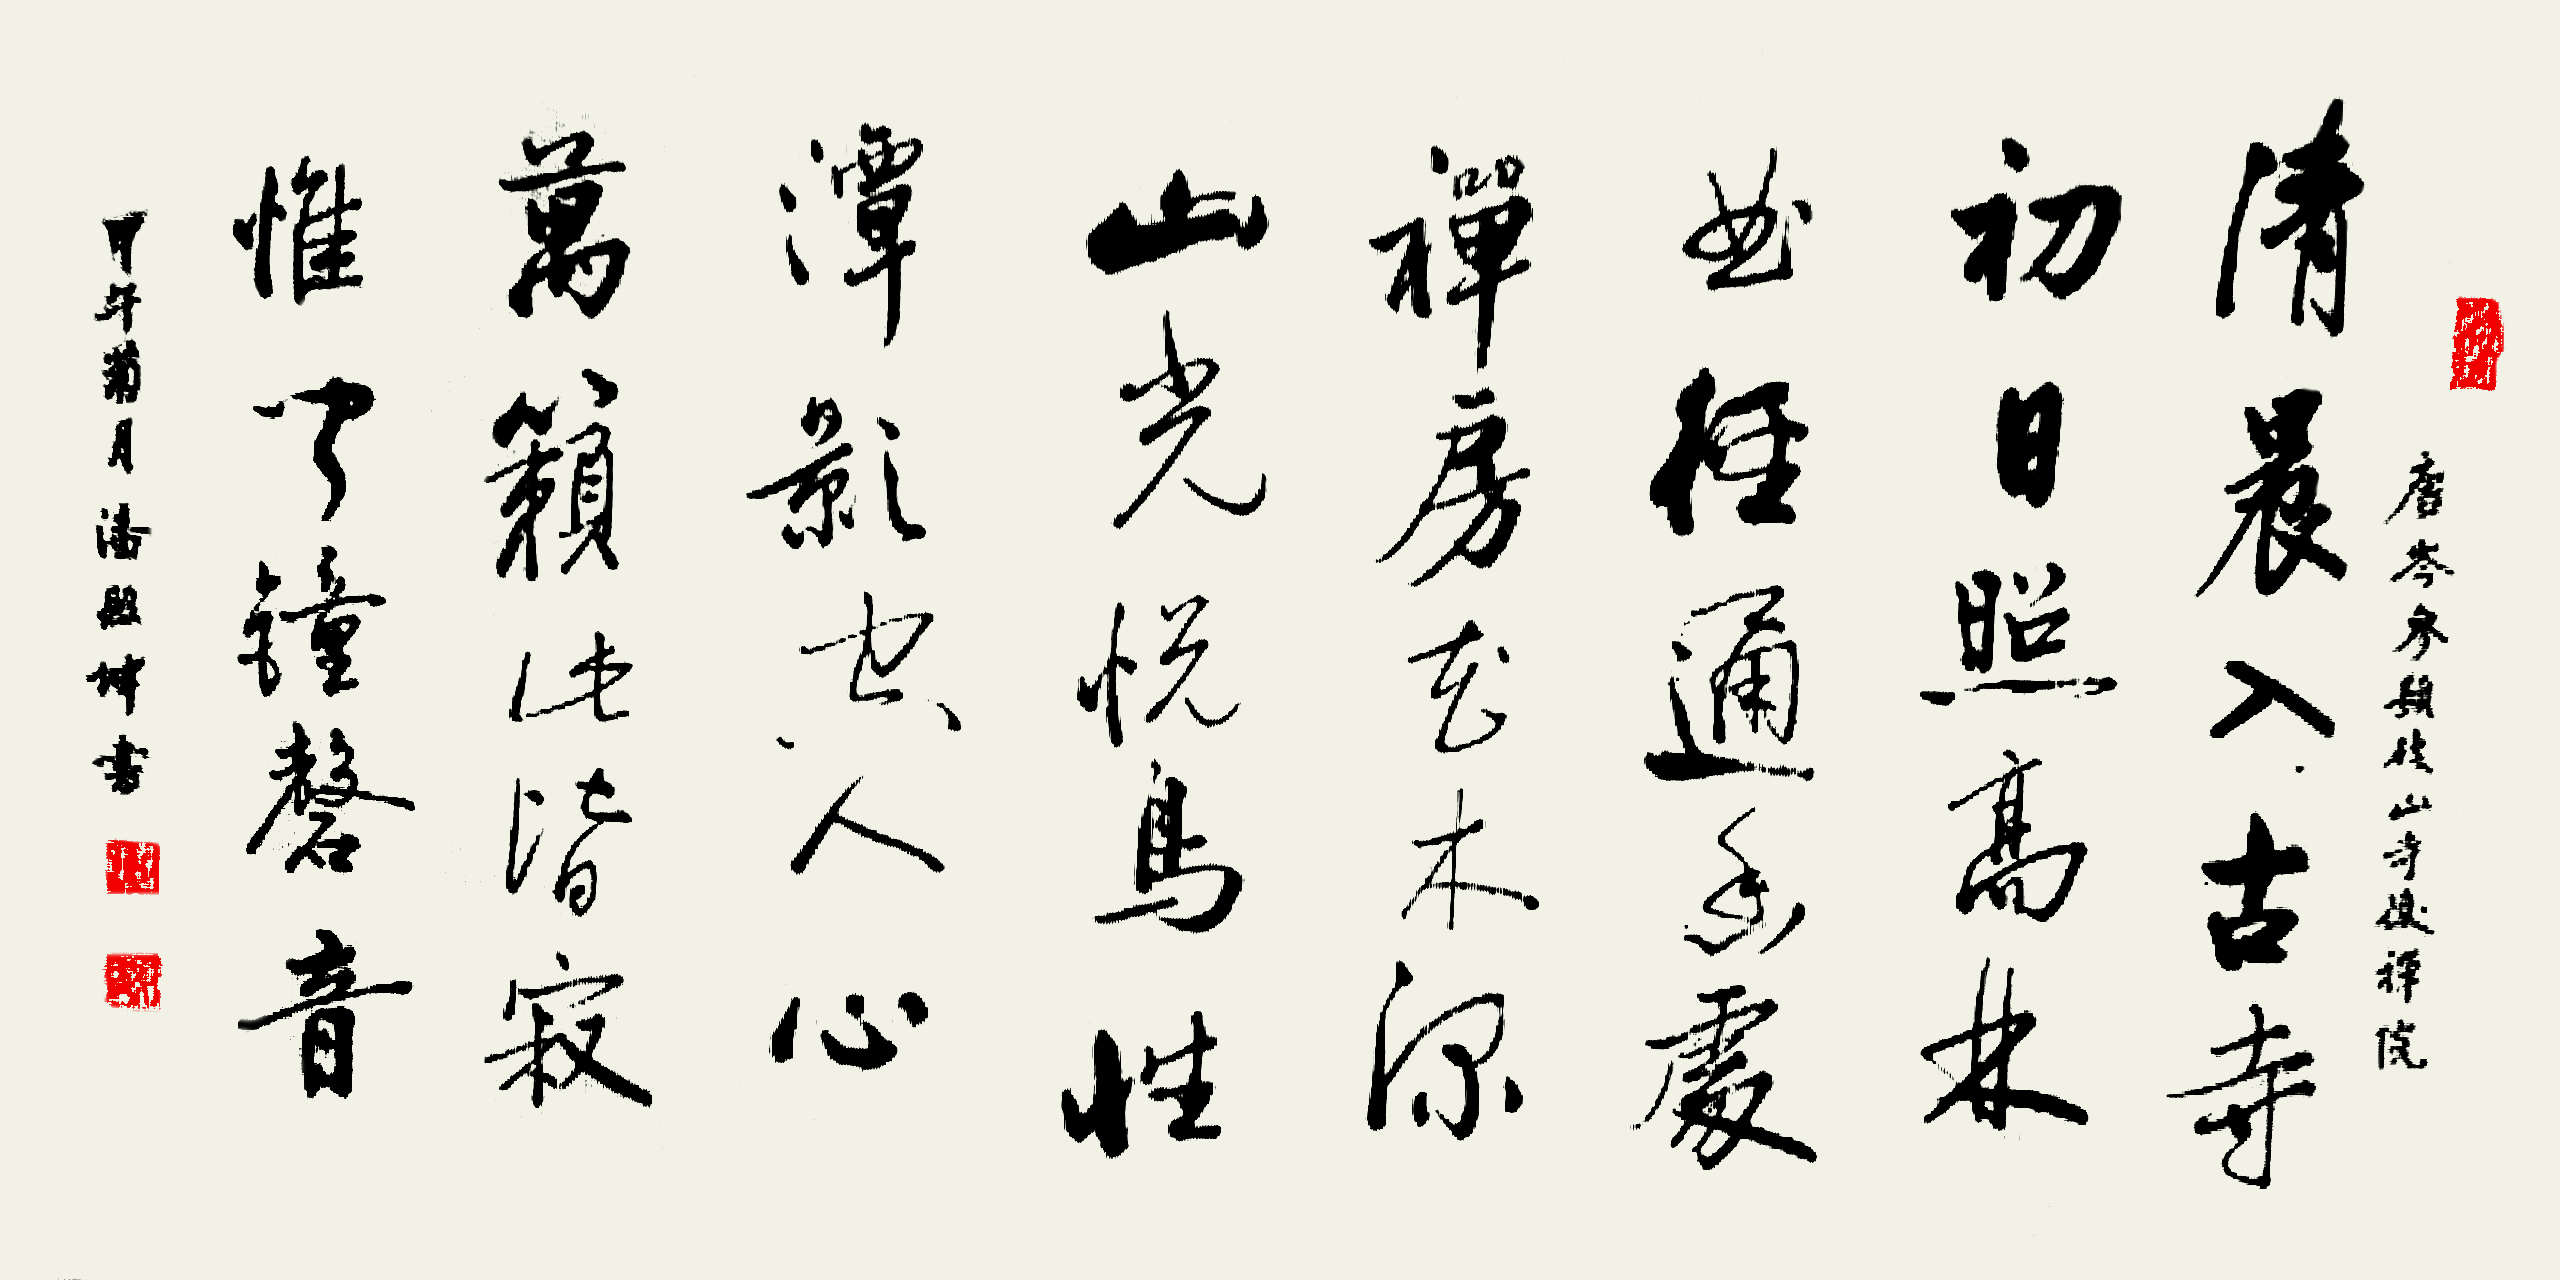 唐岑參題破山寺後禪院
清晨入古寺
初日照高林
曲徑通幽處
禪房花木深
山光悦鳥性
潭影空人心
萬籟此皆寂
惟聞鐘磬音
甲午菊月潘坤書